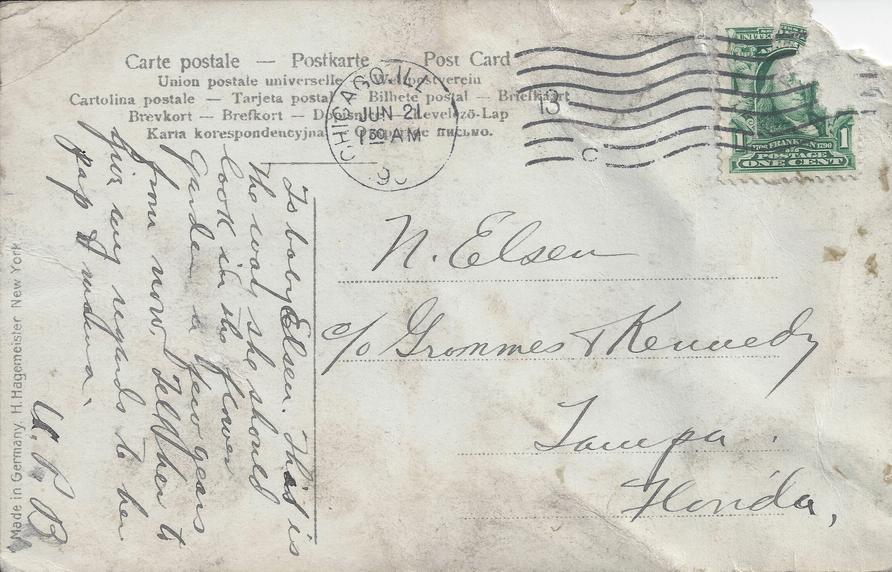 Carte postale — Postkarte — Post Card
Union postale universelle Weltpostverein
Cartolina postale — Tarjeta postal Bilhete postal — Briefkaart
Brevkort — Brefkort — Levelező-Lap
Karta korespondencyjna письмо.
CHICAGO, ILL.
JUN 21
1 30 AM
13
C
UNITED
1798 FRANKLIN 1790
1 POSTAGE 1
ONE CENT
N. Elsen
c/o Grommes & Kennedy
Tampa.
Florida,
To baby Elsen. That is
the way she should
look in the flower
Garden a few years
from now. Tell her to
give my regards to her
pap & mama.
Made in Germany. H. Hagemeister New York